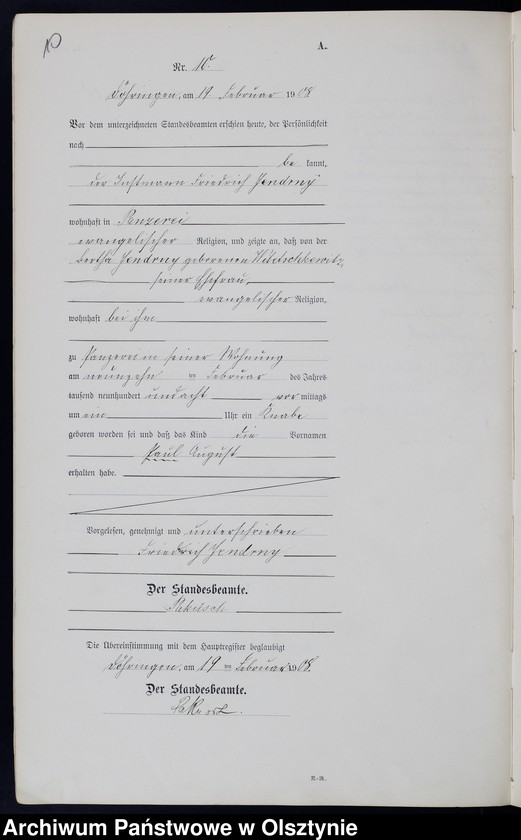 10
A.
Nr. 10.
Döhringen, am 19 Februar 1908
Vor dem unterzeichneten Standesbeamten erschien heute, der Persönlichkeit
nach
be kannt,
der Instmann Friedrich Jendrny
wohnhaft in Panzerei
evangelischer Religion, und zeigte an, daß von der
Bertha Jendrny geborenen
seiner Ehefrau,
evangelischer Religion,
wohnhaft bei ihm
zu Panzerei in seiner Wohnung
am neunzehn ten Februar des Jahres
tausend neunhundert und acht vor mittags
um ein Uhr ein Knabe
geboren worden sei und daß das Kind die Vornamen
Paul August
erhalten habe.
Vorgelesen, genehmigt und unterschrieben
Friedrich Jendrny
Der Standesbeamte.
Die Übereinstimmung mit dem Hauptregister beglaubigt
Döhringen, am 19 ten Februar 1908.
Der Standesbeamte.
E.-R.
Archiwum Państwowe w Olsztynie